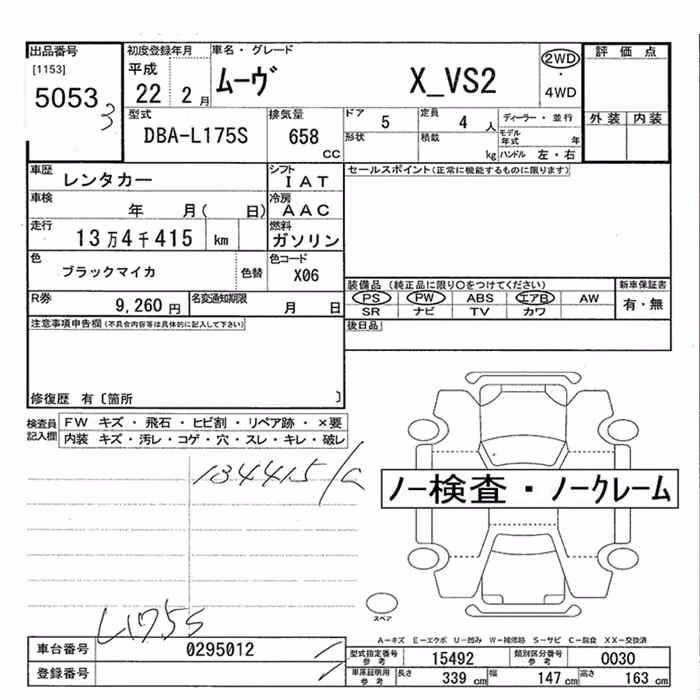 出品番号 初度登録年月 車名・グレード 2WD 評価点
[1153] 平成 ムーヴ X_VS2 ・
5053 3 22 2月 4WD
型式 排気量 ドア 定員 ディーラー・並行 外装 内装
DBA-L175S 658 CC 5 4人 モデル年式 年
形状 積載 kg ハンドル 左・右
車歴 レンタカー シフト IAT セールスポイント(正常に機能するものに限ります)
車検 年 月( 日) 冷房 AAC
走行 13万4千415 km 燃料 ガソリン
色 ブラックマイカ 色替 色コード X06 装備品 (純正品に限り○をつけてください) 新車保証書
R券 9,260円 名変通知期限 月 日 PS PW ABS エアB AW 有・無
SR ナビ TV カワ
注意事項申告欄(不具合内容等は具体的に記入して下さい) 後日品
修復歴 有〔箇所 〕
検査員記入欄 FW キズ・飛石・ヒビ割・リペア跡・×要
内装 キズ・汚レ・コゲ・穴・スレ・キレ・破レ
134415/
ノー検査・ノークレーム
スペア
L175S
A-キズ E-エクボ U-凹み W-補修跡 S-サビ C-腐食 XX-交換済
車台番号 0295012 型式指定番号参考 15492 類別区分番号参考 0030
登録番号 車庫証明用参考 長さ 339 cm 幅 147 cm 高さ 163 cm